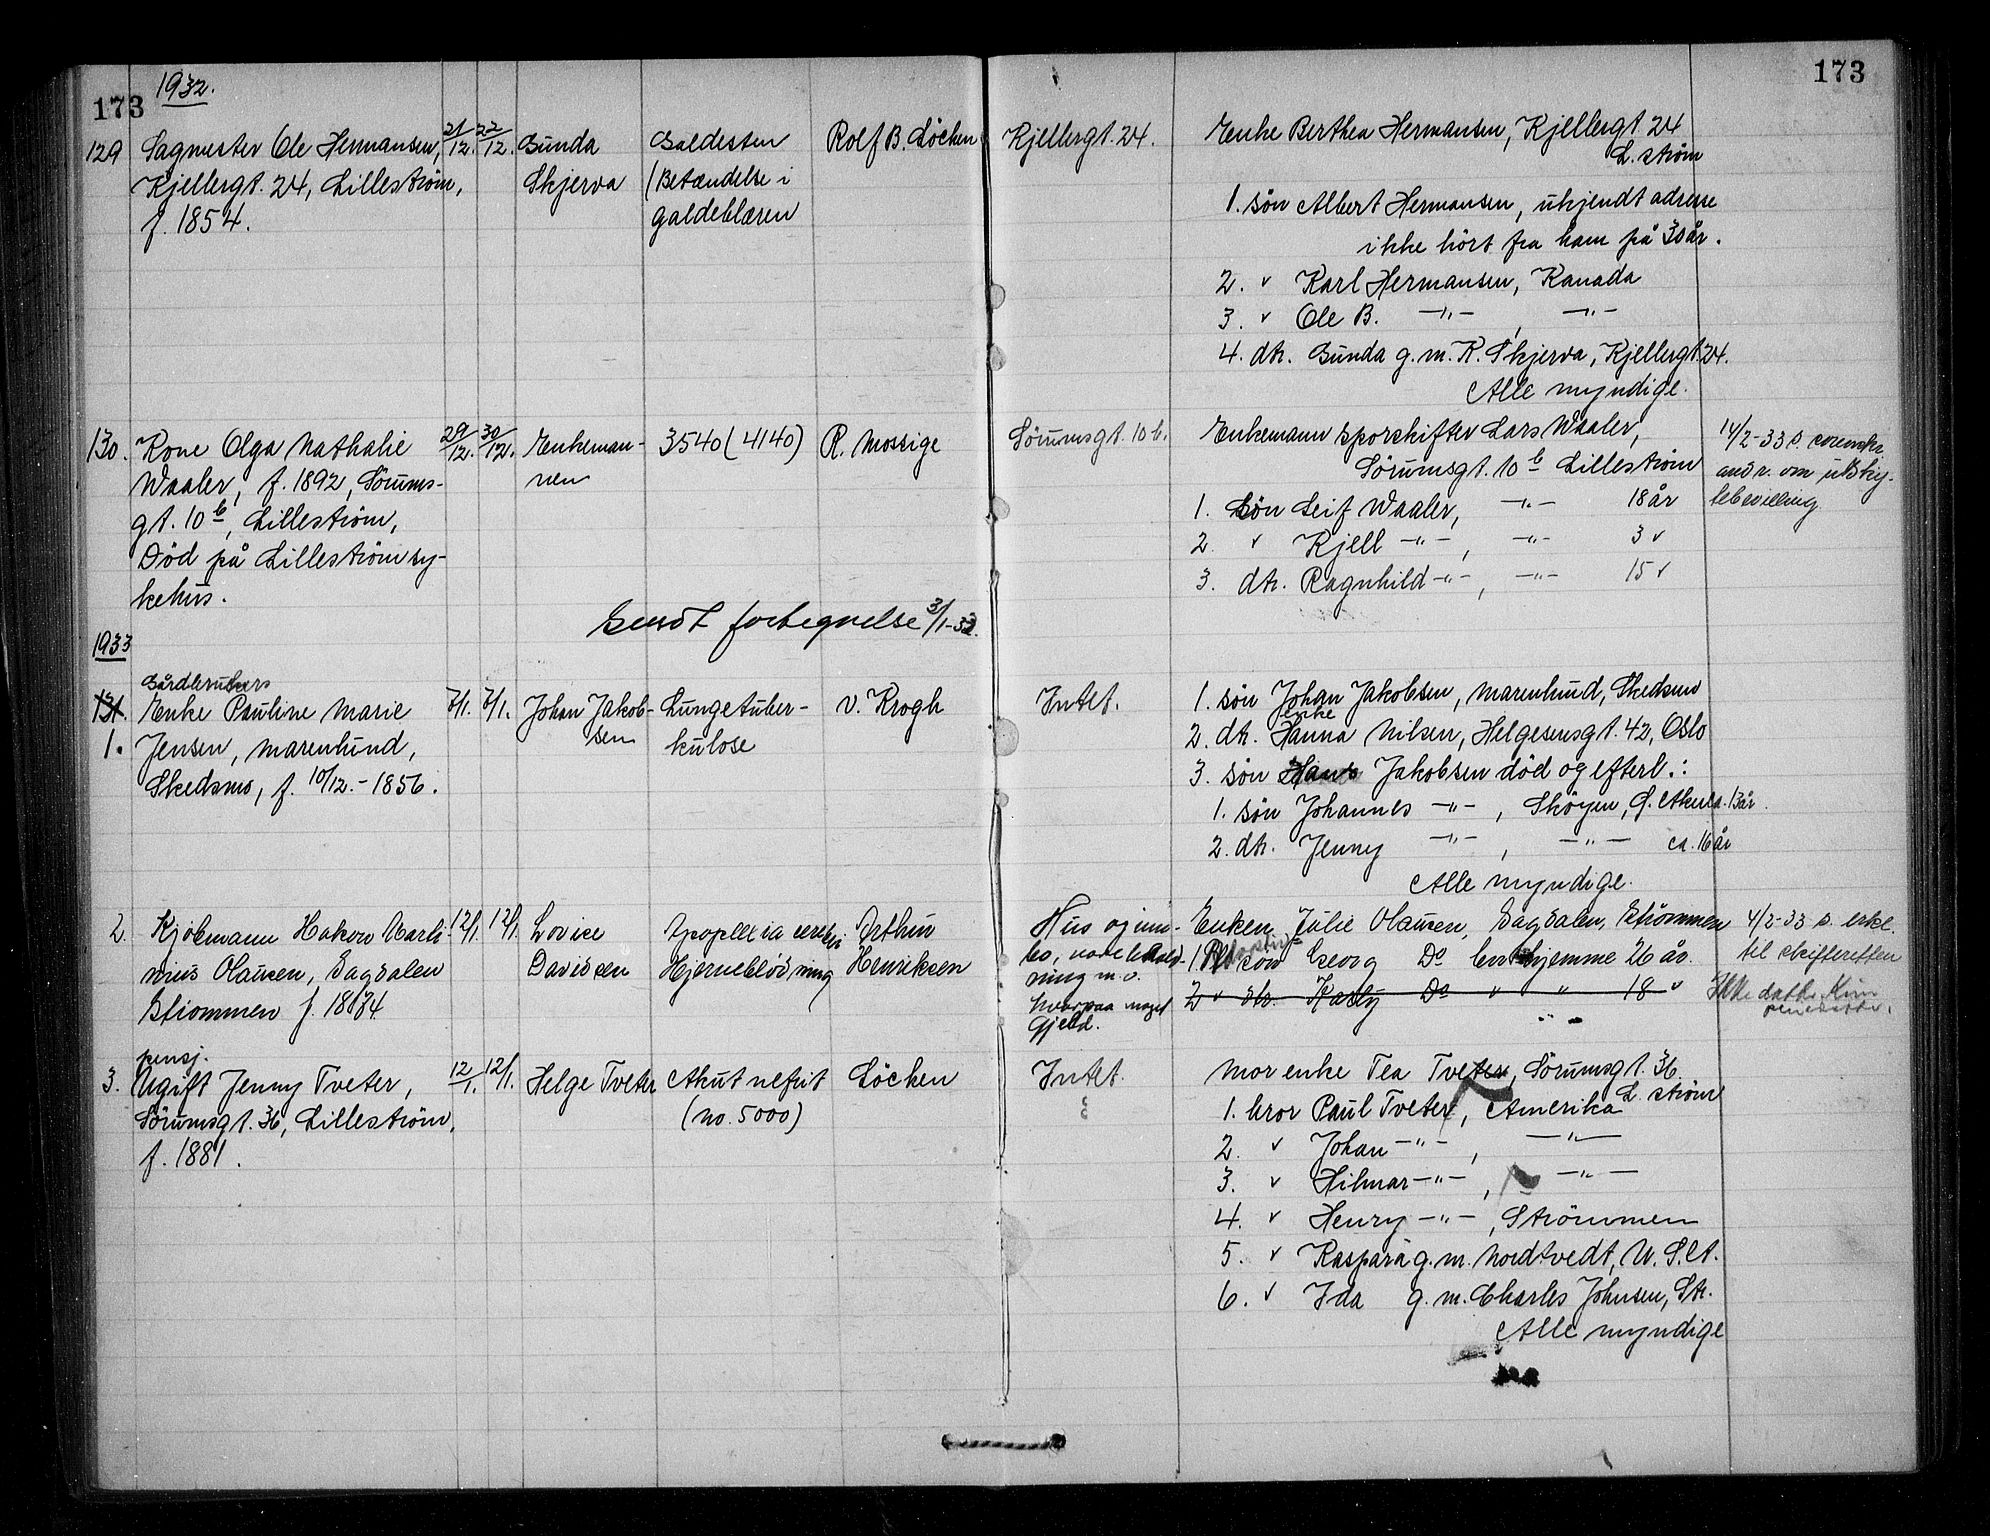 173
1932.
129 Sagmester Ole Hermansen,
Kjellergt. 24, Lilleström,
f. 1854.
21/12. 22/12.
Gunda
Skjerva
Galdesten
(Betændelse i
galdeblæren
Rolf B. Löchen
Kjellergt. 24.
Enke Berthea Hermansen, Kjellergt 24
L. ström
1. sön Albert Hermansen, ukjendt adresse
ikke hört fra ham på 30 år.
2. " Karl Hermansen, Kanada
3. " Ole B. —"— , —"—
4. dtr. Gunda g. m. K. Skjerva, Kjellergt. 24.
Alle myndige.
173
130. Kone Olga Nathalie
Waaler, f. 1892, Sörums-
gt. 10 b, Lilleström,
Död på Lilleström sy-
kehus.
29/12. 30/12.
Enkeman-
nen
3540 (4140)
R. Mossige
Sörumsgt. 10 b.
Enkemann sporskifter Lars Waaler,
Sörumsgt. 10 b Lilleström
1. Sön Leif Waaler, —"— 18 år
2. " Kjell —"— , —"— 3 "
3. dtr. Ragnhild —"— , —"— 15 "
14/2-33 s. sorenskr.
om
Sendt fortegnelse 3/1-33.
1933
131.
1.
Gårdbrukers
Enke Pauline Marie
Jensen, Marenlund,
Skedsmo, f. 10/12. - 1856.
7/1. 7/1.
Johan Jakob-
sen
Lungetuber-
kulose
v. Krogh
Intet.
1. sön Johan Jakobsen, Marenlund, Skedsmo
enke
2. dtr. Hanna Nilsen, Helgesensgt. 42, Oslo
3. sön Hans Jakobsen död og efterl.:
1. sön Johannes —"— , Sköyen, 13 år.
2. dtr. Jenny —"— , —"— ca. 16 år
Alle myndige.
2. Kjöbmann Hakon Marti-
nius Olausen, Sagdalen
Strømmen f. 1874
12/1. 12/1.
Lovise
Davidsen
Apoplexia cerebri
Hjerneblödning
Arthur
Henriksen
Hus og inn-
bo, varebehold-
ning m.v.
hvorpaa noget
Gjeld.
Enken Julie Olausen, Sagdalen, Strømmen
1 sön Georg Do hjemme 26 år.
2 " dtr. Do " " 18 "
4/2-33 s. erkl.
til skifteretten
3.
pensj.
Ugift Jenny Tveter,
Sörumsgt. 36, Lilleström,
f. 1881.
12/1. 12/1.
Helge Tveter
Akut nefrit
(no. 5000)
Löchen
Intet.
Mor enke Tea Tveter, Sörumsgt. 36.
L. ström
1. bror Paul Tveter, Amerika
2. " Johan —"— , —"—
3. " Hilmar —"— , —"—
4. " Henry —"— , Strömmen
5. " Kaspara g. m. Nordtvedt, U. S. A.
6. " Ida g. m. Charles Johnsen, Str.
Alle myndige